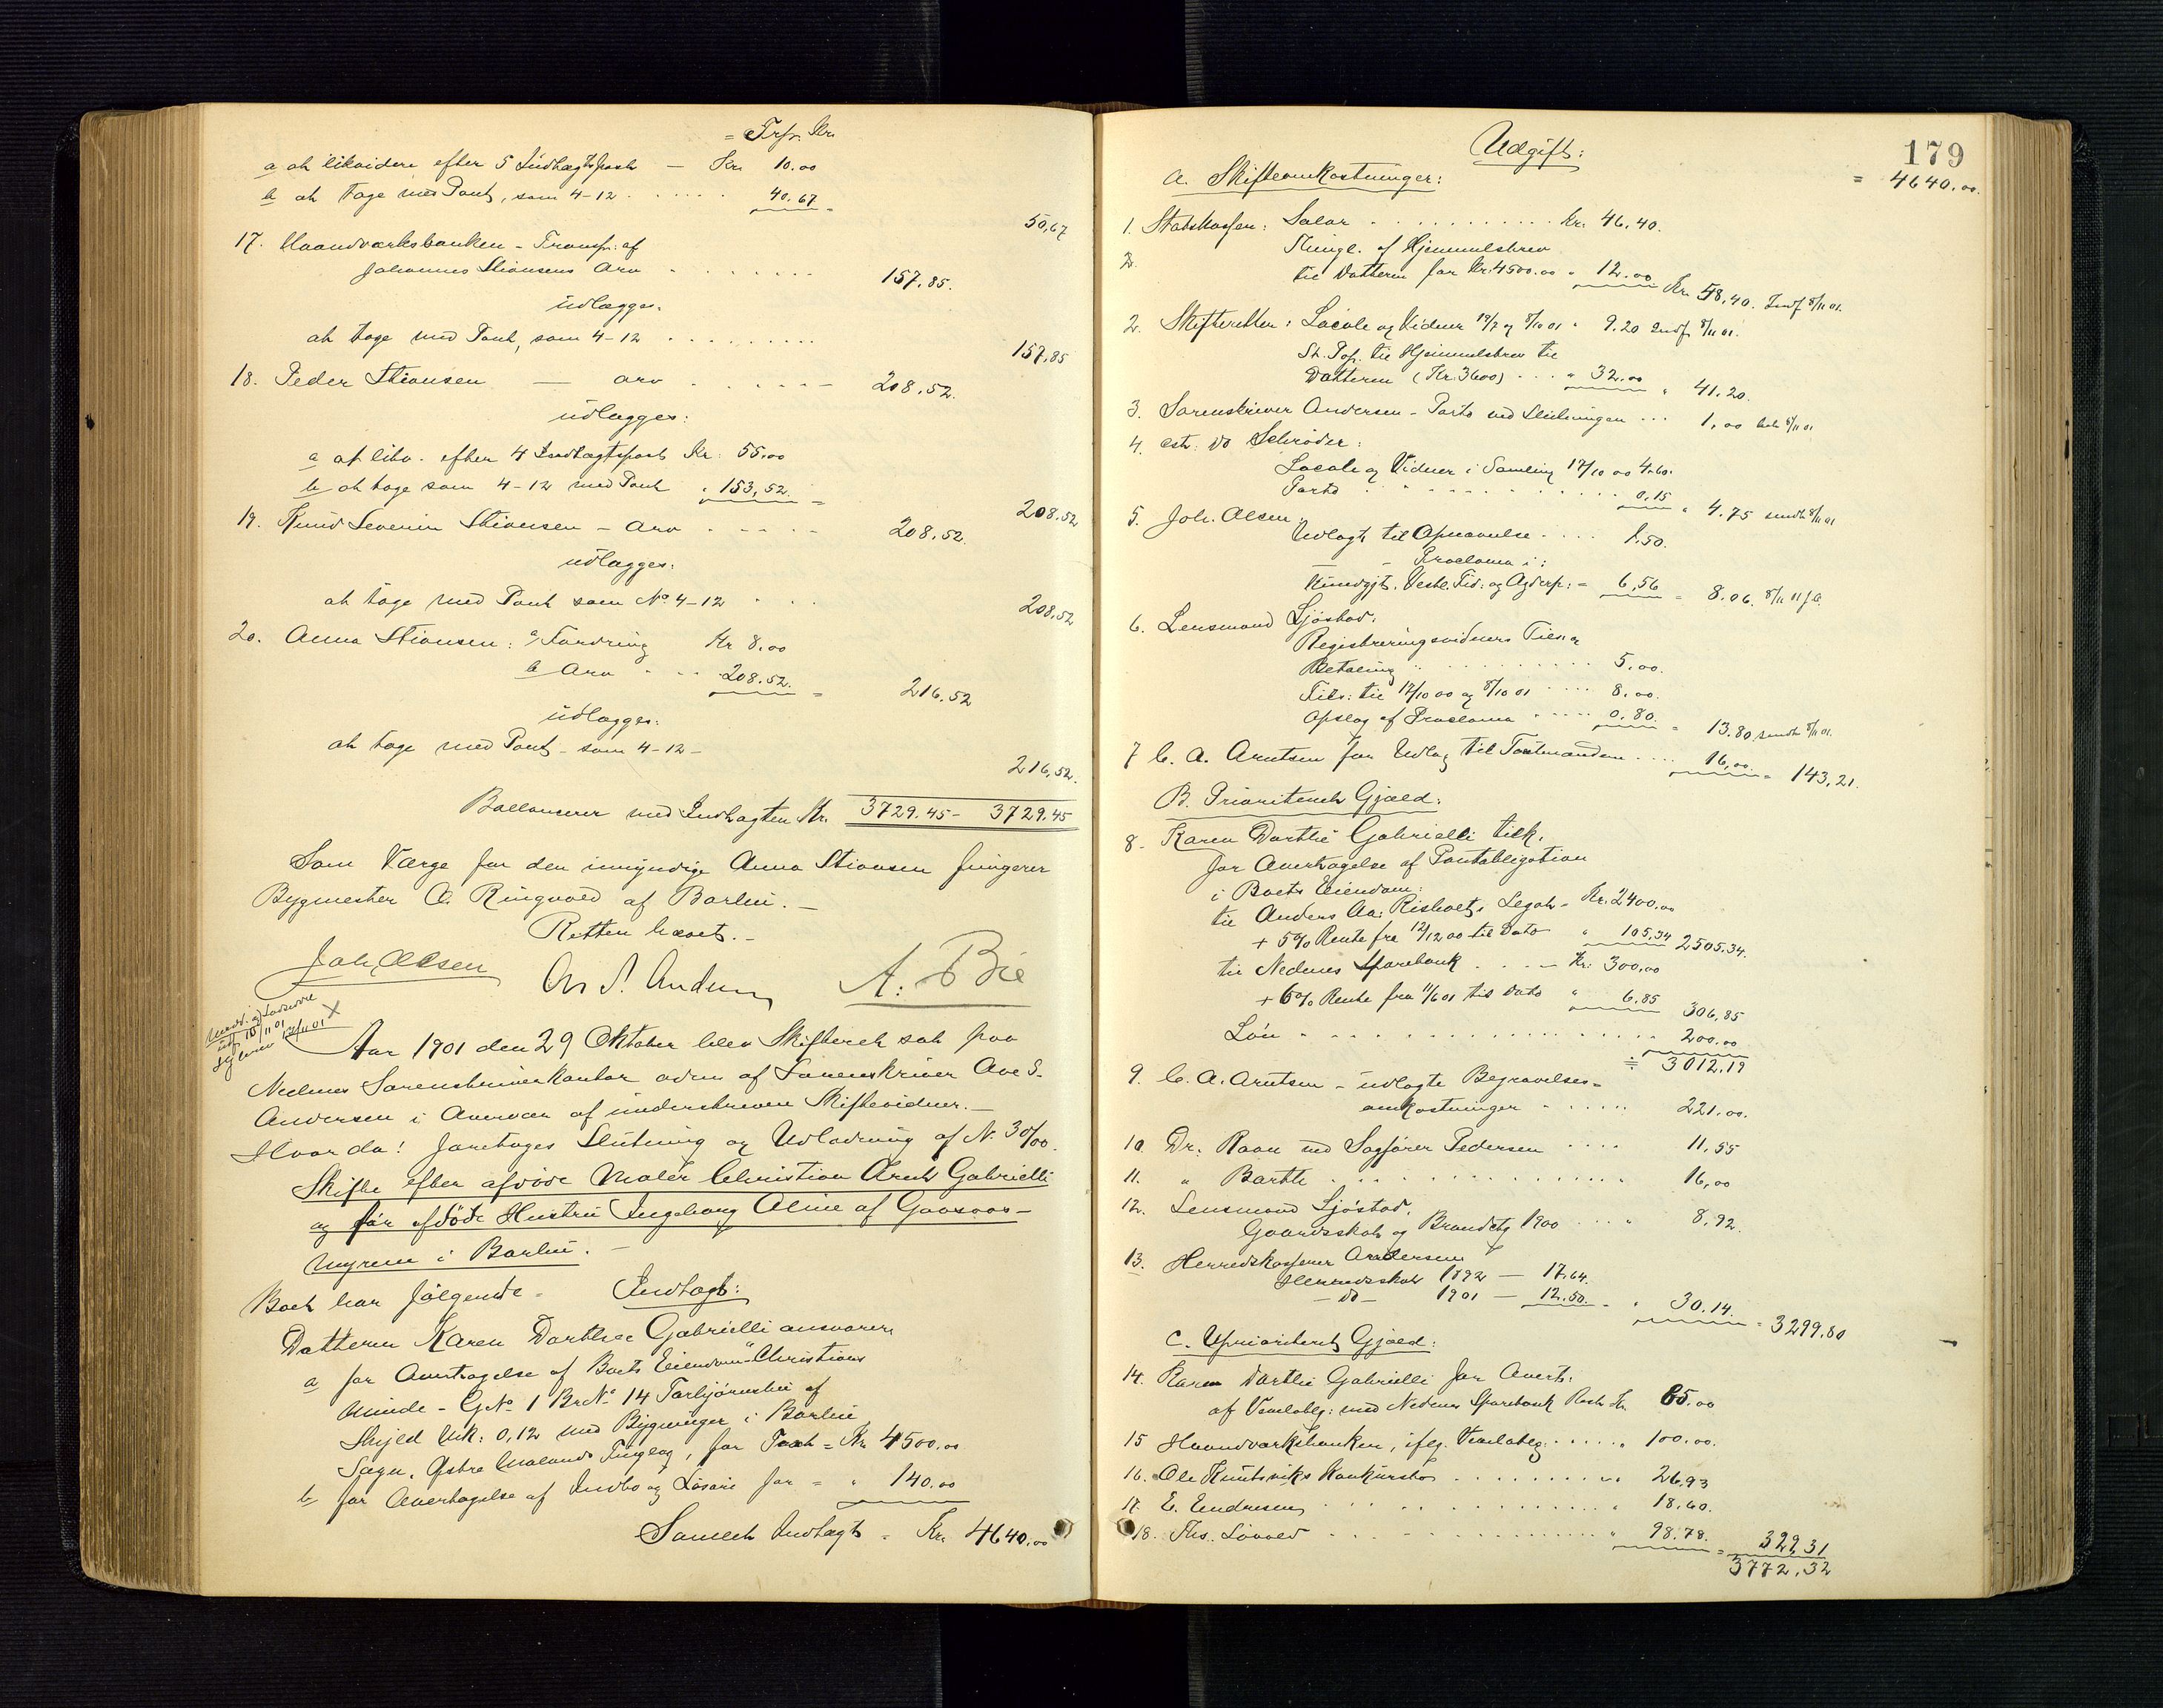 = Trfr. Kr.
a at likvidere efter 5 Indtægtspost — Kr. 10.00
b at tage med Pant, som 4-12 . . . . 40.67 =
50,67
17. Haandværksbanken - Transp: af
Johannes Stiansens Arv . . . . . 157.85.
udlægges.
at tage med Pant, som 4-12 . . . . . . . .
157,85
18. Peder Stiansen — Arv . . . . . 208.52.
udlægges:
a at likv. efter 4 Indtægtspost Kr. 55.00
b at tage som 4-12 med Pant " 153,52. =
208.52
19. Knud Severin Stiansen - Arv . . . . . 208.52.
udlægges:
at tage med Pant som No 4-12 . . .
208,52
20. Anna Stiansen: a/ Fordring Kr 8.00
b Arv . . . 208.52. = 216.52
udlægges:
at tage med Pant - som 4-12 -
216,52.
Ballancerer med Indtægten Kr. 3729.45 - 3729.45
Som Værge for den umyndige Anna Stiansen fungerer
Bygmester O. Ringvold af Barbu. -
Retten hævet. -
Joh Olsen Ove S. Andersen A. Bie
Aar 1901 den 29 Oktober blev Skifteret sat paa
Nedenes Sorenskriverkontor adm af Sorenskriver Ove S.
Andersen i Overvær af underskrevne Skiftevidner. -
Hvorda! foretoges Slutning og Udlodning af N. 30/00.
Skifte efter afdøde Maler Christian Arent Gabrielli
og før afdøde Hustru Ingeborg Oline af Gaasaas-
myren i Barbu. -
Boet har følgende - Indtægt:
Datteren Karen Dorthea Gabrielli ansvarer
a for Overtagelse af Boets Eiendom "Christians
Minde - GNo 1 BrNo 14 Torbjørnsbu af
Skyld Mk: 0,12 med Bygninger i Barbu
Sogn, Østre Molands Tinglag, for Taxt = Kr 4500.00
b for Overtagelse af Indbo og Løsøre for = " 140.00
Samlet Indtægt = Kr. 4640.00
179
Udgift:
= 4640.00.
A. Skifteomkostninger:
1. Statskassen: Salær . . . . . . . . Kr. 46,40.
2. Thingl. af Hjemmelsbrev
til Datteren for Kr. 4500.00 " 12.00 Kr. 58,40. Indf 8/11 01.
2. Skifteretten: Locale og Vidner 19/7 og 8/10 01 " 9.20 Indf 8/11 01.
St. Pap. til Hjemmelsbrev til
Datteren (Kr. 3600) . . . " 32.00 " 41.20.
3. Sorenskriver Andersen - Porto ved Slutningen . . . 1,00 8/11 01
4. cst: do Schrøder:
Locale og Vidner i Samling 17/10 00 4.60.
Porto . . . . . . . . . 0.15 " 4.75 sendt 8/11 01
5. Joh. Olsen.
Udlagt til Opnævnelse . . . . 1.50.
— - Proclama i:
Kundgjt. Vestl. Tid: og Agderp: = 6,56 = 8.06. 8/11 01 JO.
6. Lensmand Sjøstad.
Registreringsvidners Tils. &
Betaling . . . . . . . . 5.00.
Tils: til 17/10 00 og 8/10 01 . . . . 8.00.
Opslag af Proclama . . . . . 0.80. = 13.80 sendt 8/11 01.
7 C. A. Arntsen for Udlæg til Taxtmændene . . . . 16,00. = 143,21.
B. Prioriteret Gjæld:
8. Karen Dorthe Gabrielli tilk.
for Overtagelse af Pantobligation
i Boets Eiendom:
til Anders Aa: Risholts Legat - Kr. 2400.00
+ 5% Rente fra 12/12 00 til Dato " 105.34 2505,34.
til Nedenes Sparebank . . . — Kr: 300.00
+ 6% Rente fra 11/6 01 til Dato " 6.85 306,85
Løn . . . . . . . . . . . . . 200.00
= 3012.19
9. C. A. Arntsen - udlagte Begravelses-
omkostninger . . . . . . 221.00.
10. Dr. Raan ved Sagfører Pedersen . . . . 11,55
11. " Barth . . . . . . . . . . . . . . 16,00
12. Lensmand Sjøstad.
Gaardsskat og Brandctg 1900 . . . . 8.92.
13. Herredskasserer Andersen
Herredsskat 1892 — 17.64.
— do — 1901 — 12.50. = " 30.14. = 3299.80
C. Uprioriteret Gjæld:
14. Karen Dorthe Gabrielli for Overt:
af Vexelobl: med Nedenes Sparebank Rest Kr. 85.00
15 Haandværksbanken, iflg. Vexelobl. . . . . . 100.00.
16. Ole Knutsviks Konkursbo . . . . . . . . . 26.93
17. E. Endresen . . . . . . . . . . . 18.60.
18. Ths. Løvold . . . . . . . . . . . 98.78. = 329,31
3772,32